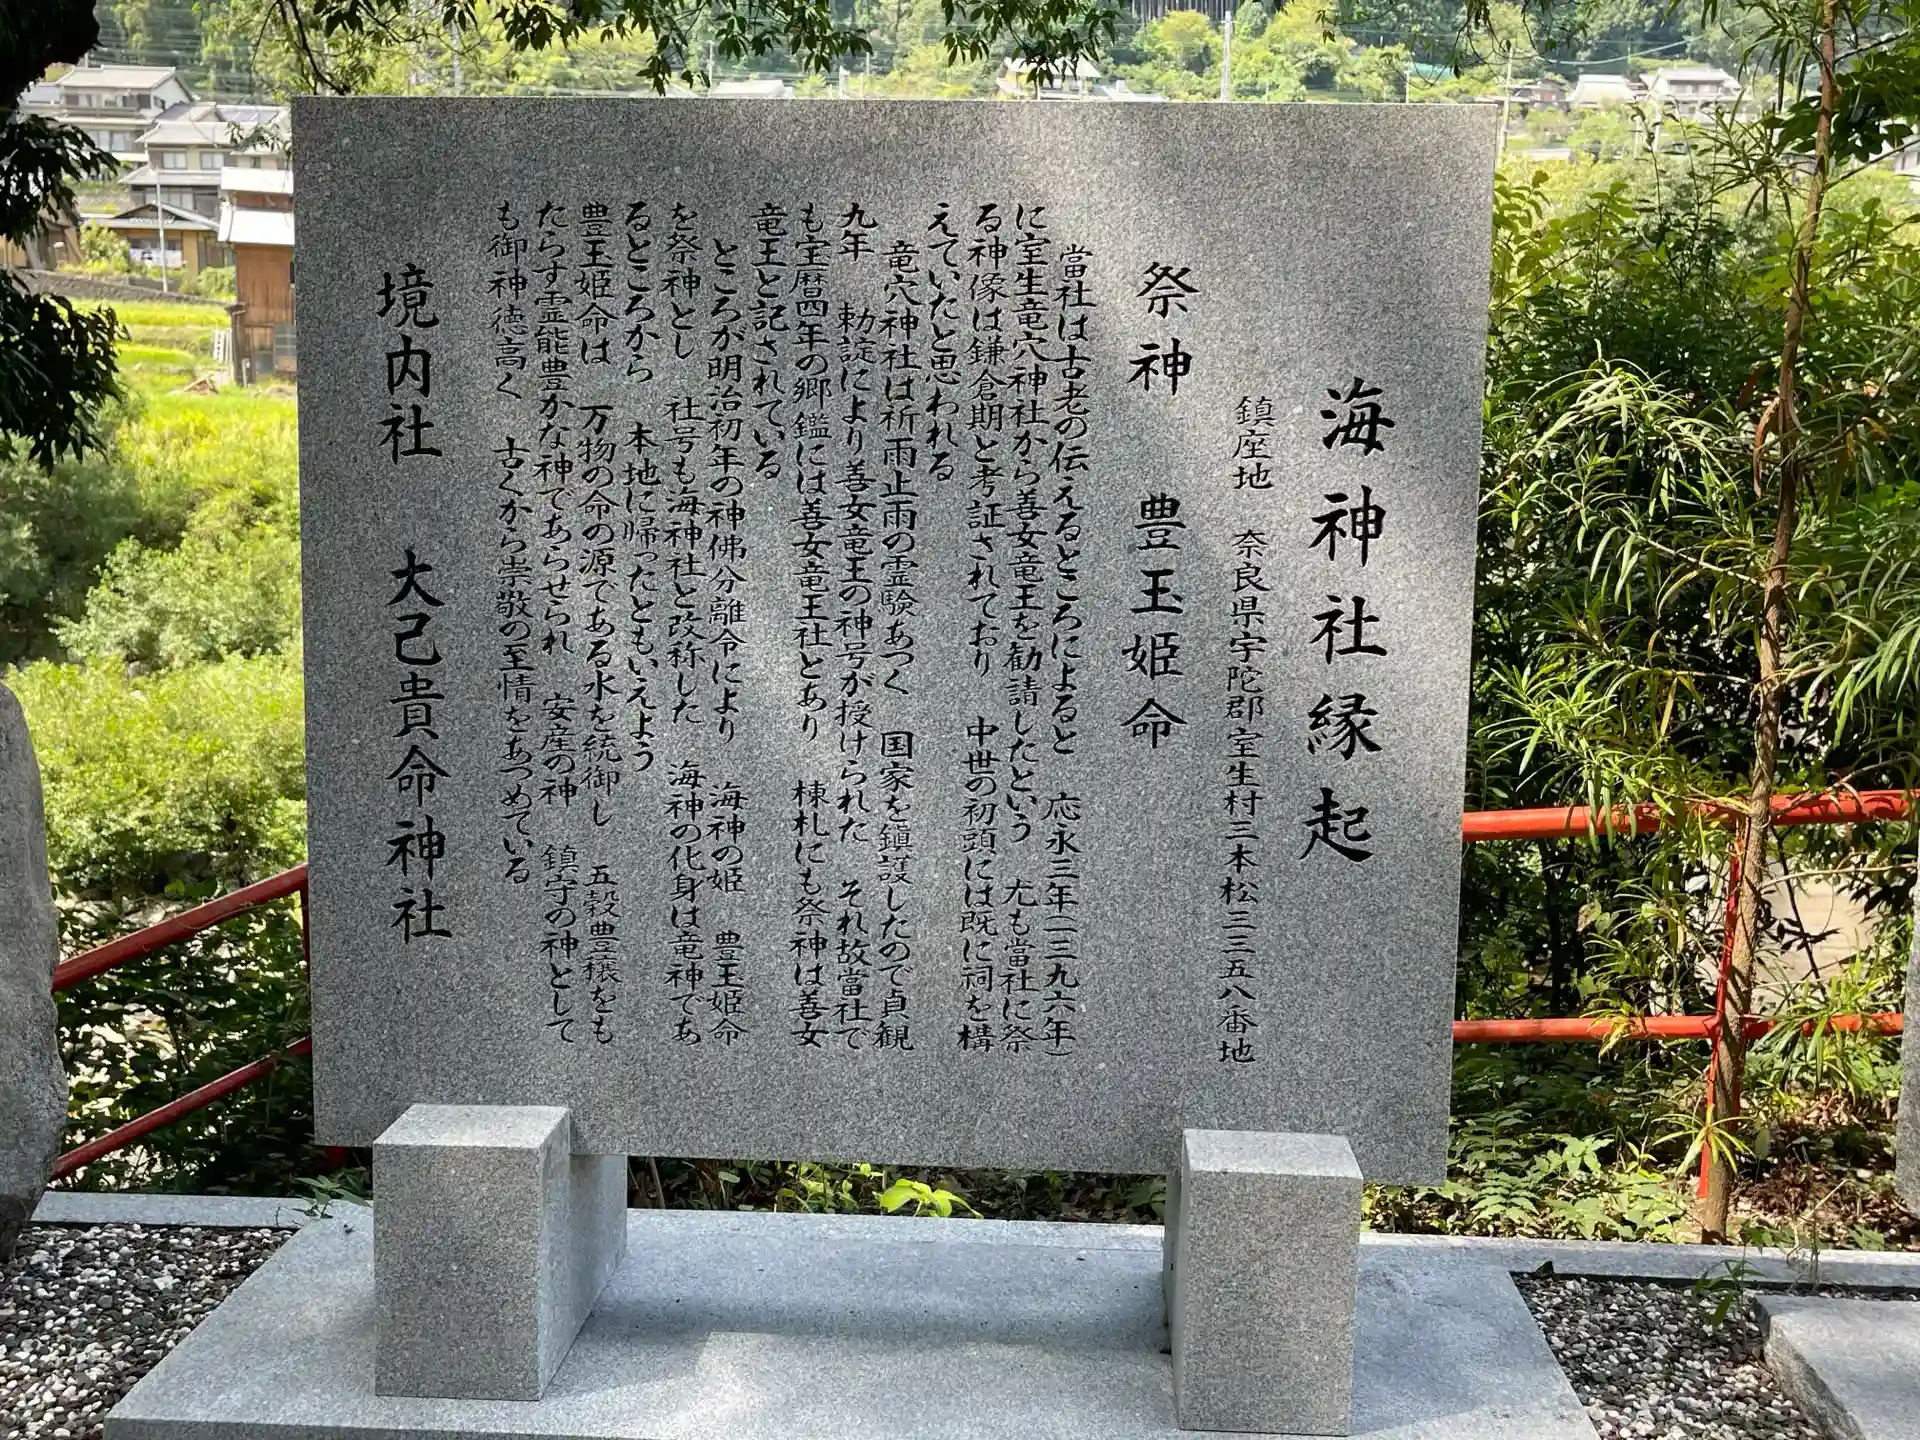 海神社縁起
鎮座地　奈良県宇陀郡室生村三本松三三五八番地
祭神　豊玉姫命
當社は古老の伝えるところによると　応永三年(一三九六年)
に室生竜穴神社から善女竜王を勧請したという　尤も當社に祭
る神像は鎌倉期と考証されており　中世の初頭には既に祠を構
えていたと思われる
竜穴神社は祈雨止雨の霊験あつく　国家を鎭護したので貞観
九年　勅諚により善女竜王の神号が授けられた　それ故當社で
も宝暦四年の郷鑑には善女竜王社とあり　棟札にも祭神は善女
竜王と記されている
ところが明治初年の神佛分離令により　海神の姫　豊玉姫命
を祭神とし　社号も海神社と改称した　海神の化身は竜神であ
るところから　本地に帰ったともいえよう
豊玉姫命は　万物の命の源である水を統御し　五穀豊穣をも
たらす霊能豊かな神であらせられ　安産の神　鎮守の神として
も御神徳高く　古くから崇敬の至情をあつめている
境内社　大己貴命神社